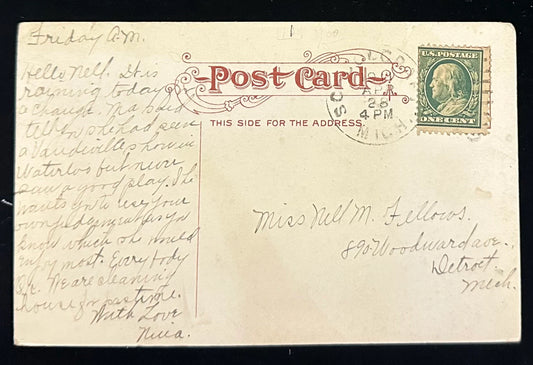 Friday A.M.
Hello Nell. It is
raining today
a change. Ma said
tell you she had seen
a Vaudeville show in
Waterloo but never
saw a good play. She
wants you to use your
own judgment as you
know which she would
enjoy most. Everybody
O.K. We are cleaning
house for pastime.
With Love
Post Card
THIS SIDE FOR THE ADDRESS.
AP
26
4 PM
MICH.
U.S. POSTAGE
ONE CENT
Miss Nell M. Fellows.
890 Woodward ave.,
Detroit
Mich.